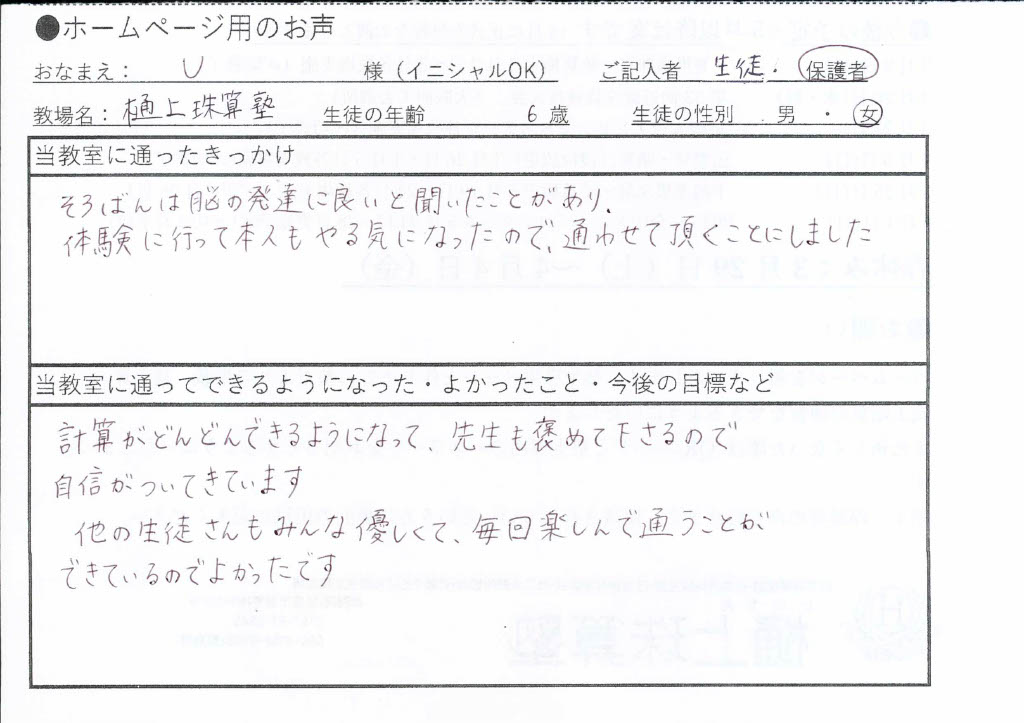 ●ホームページ用のお声
おなまえ： U 様（イニシャルOK） ご記入者 生徒・保護者
教場名：樋上珠算塾 生徒の年齢 6 歳 生徒の性別 男 ・ 女
当教室に通ったきっかけ
そろばんは脳の発達に良いと聞いたことがあり、
体験に行って本人もやる気になったので、通わせて頂くことにしました
当教室に通ってできるようになった・よかったこと・今後の目標など
計算がどんどんできるようになって、先生も褒めて下さるので
自信がついてきています
他の生徒さんもみんな優しくて、毎回楽しんで通うことが
できているのでよかったです